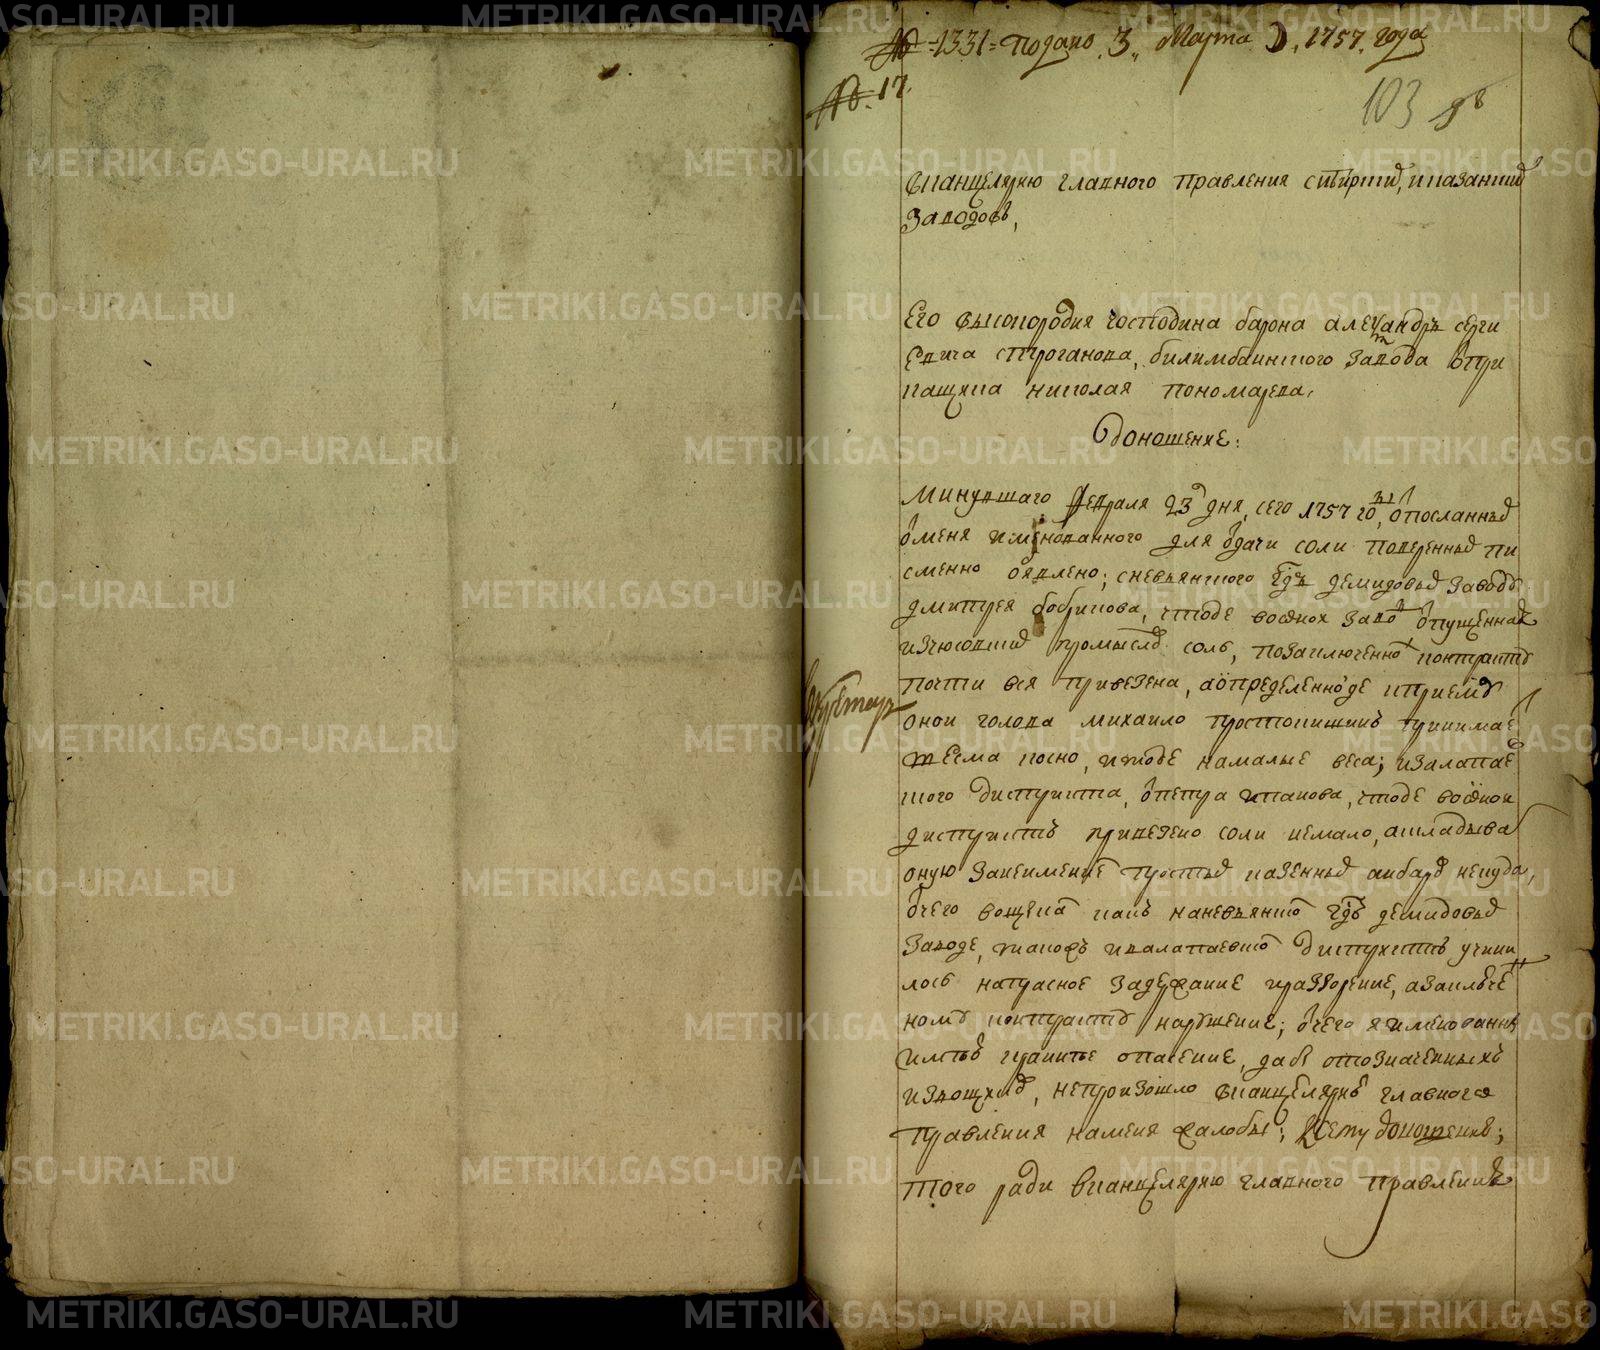 № 1331 = подано 3 марта 1757 года
№ 17.
103
98
вканцелярию главного правления сибирских, иказанских
заводовъ,
Его высокородия господина барона александръ серги
евича строганова, билимбаинского завода отпри
кащика николая пономарева,
доношение:
минувшаго февраля 23 дня, сего 1757 го, отпосланных
отменя имянованного для отдачи соли поверенных пи
сменно обявлено; сневьянского гдъ демидовых заводъ
дмитрея бобрикова, чтоде воные заво отпущенная
изчюсовских промыслов соль, позаключенному контракту
почти вся привезена, аопределенной де кприему
оной голова михаило простокишинъ принимает
весма косно, итоде намалые весы; изалапаев
ского дистрикта, отпетра ипанова, чтоде воной
дистриктъ привезено соли немало, аскладыват
оную занеимение простых казенных анбаров некуда,
отчего вощика какъ наневьянском гдъ демидовых
заводе, такожъ ивалапаевском дистриктъ учини
лось напрасное задержание иразорение, азаключен
ному контракту нарушение; отчего я имянованны
имеъ крайнее опасение, дабы отозначенныхъ
извощиков, непроизошло вканцелярие главного
правления наменя жалобы; Ксему доношению;
того ради вканцелярию главного правления